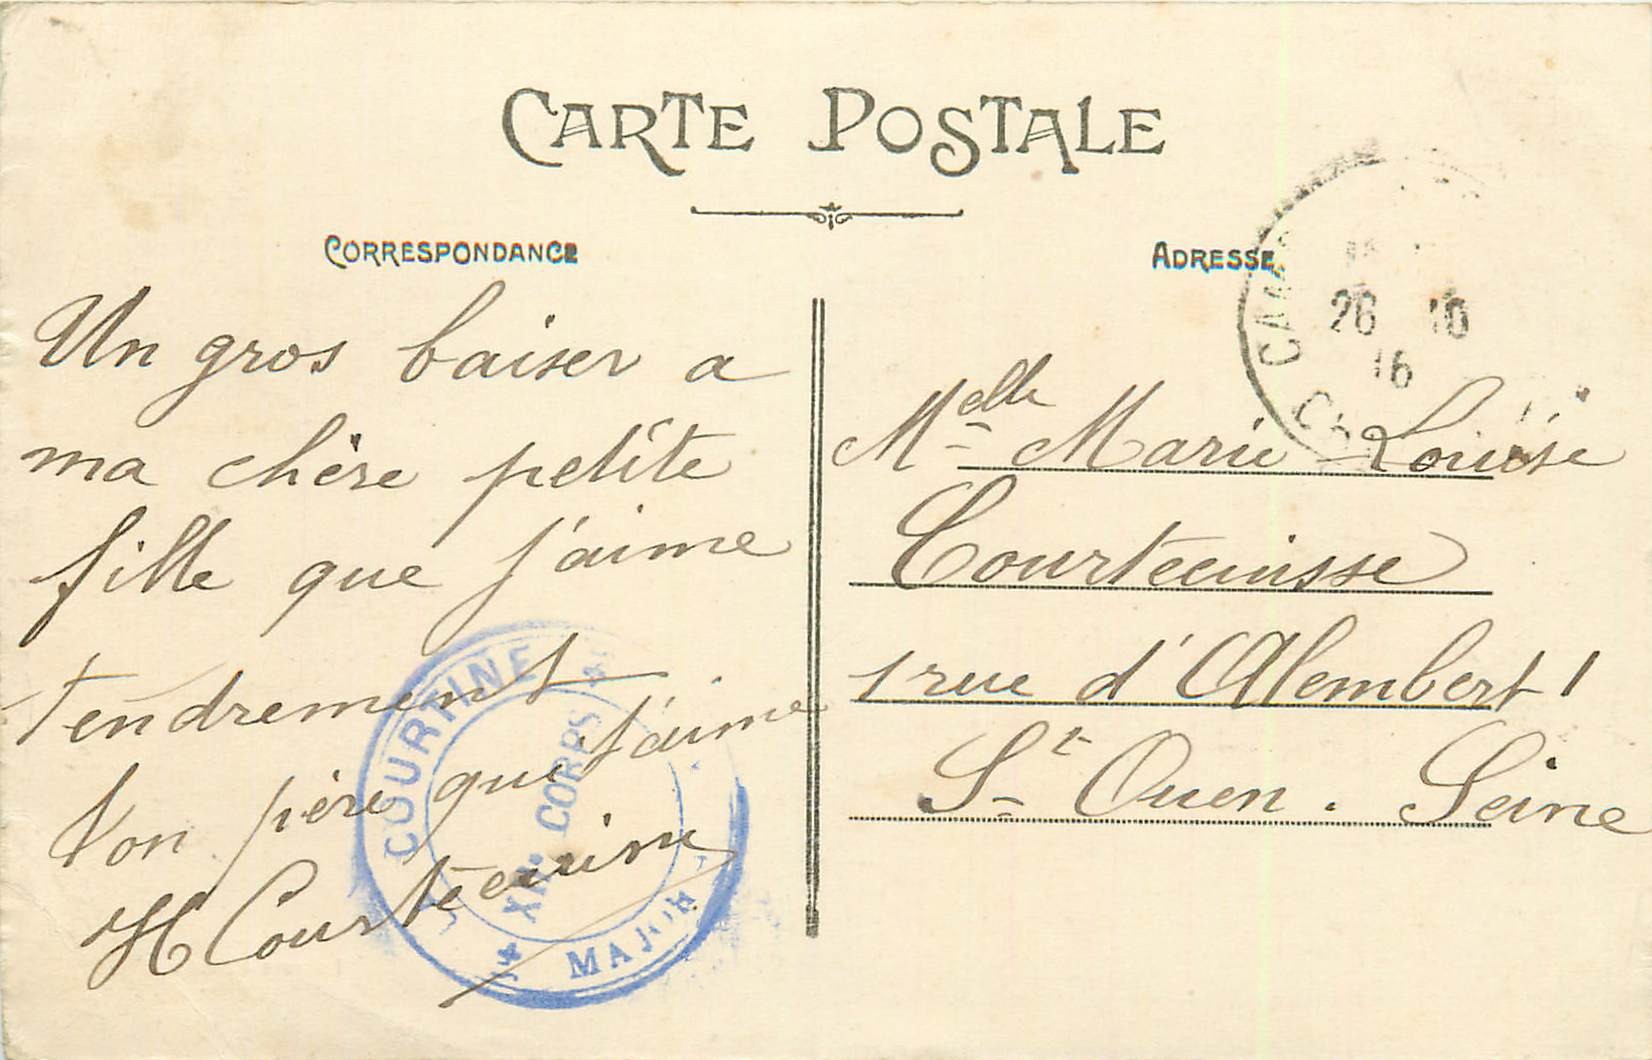 CARTE POSTALE
CORRESPONDANCE
Un gros baiser a
ma chère petite
fille que j'aime
tendrement
Ton père que j'aime
H Courtecuisse
COURTINE
XII. CORPS
MAJOR
ADRESSE
26 10
16
Melle Marie Louise
Courtecuisse
1 rue d'Alembert 1
St Ouen. Seine